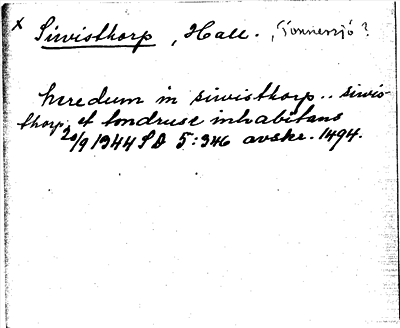 x Siwisthorp, Hall. , Tönnersjö?
heredum in siwisthorp.. siwis-
thorp et tondruse inhabitans
20/9 1344 SD 5:346 avskr. 1494.